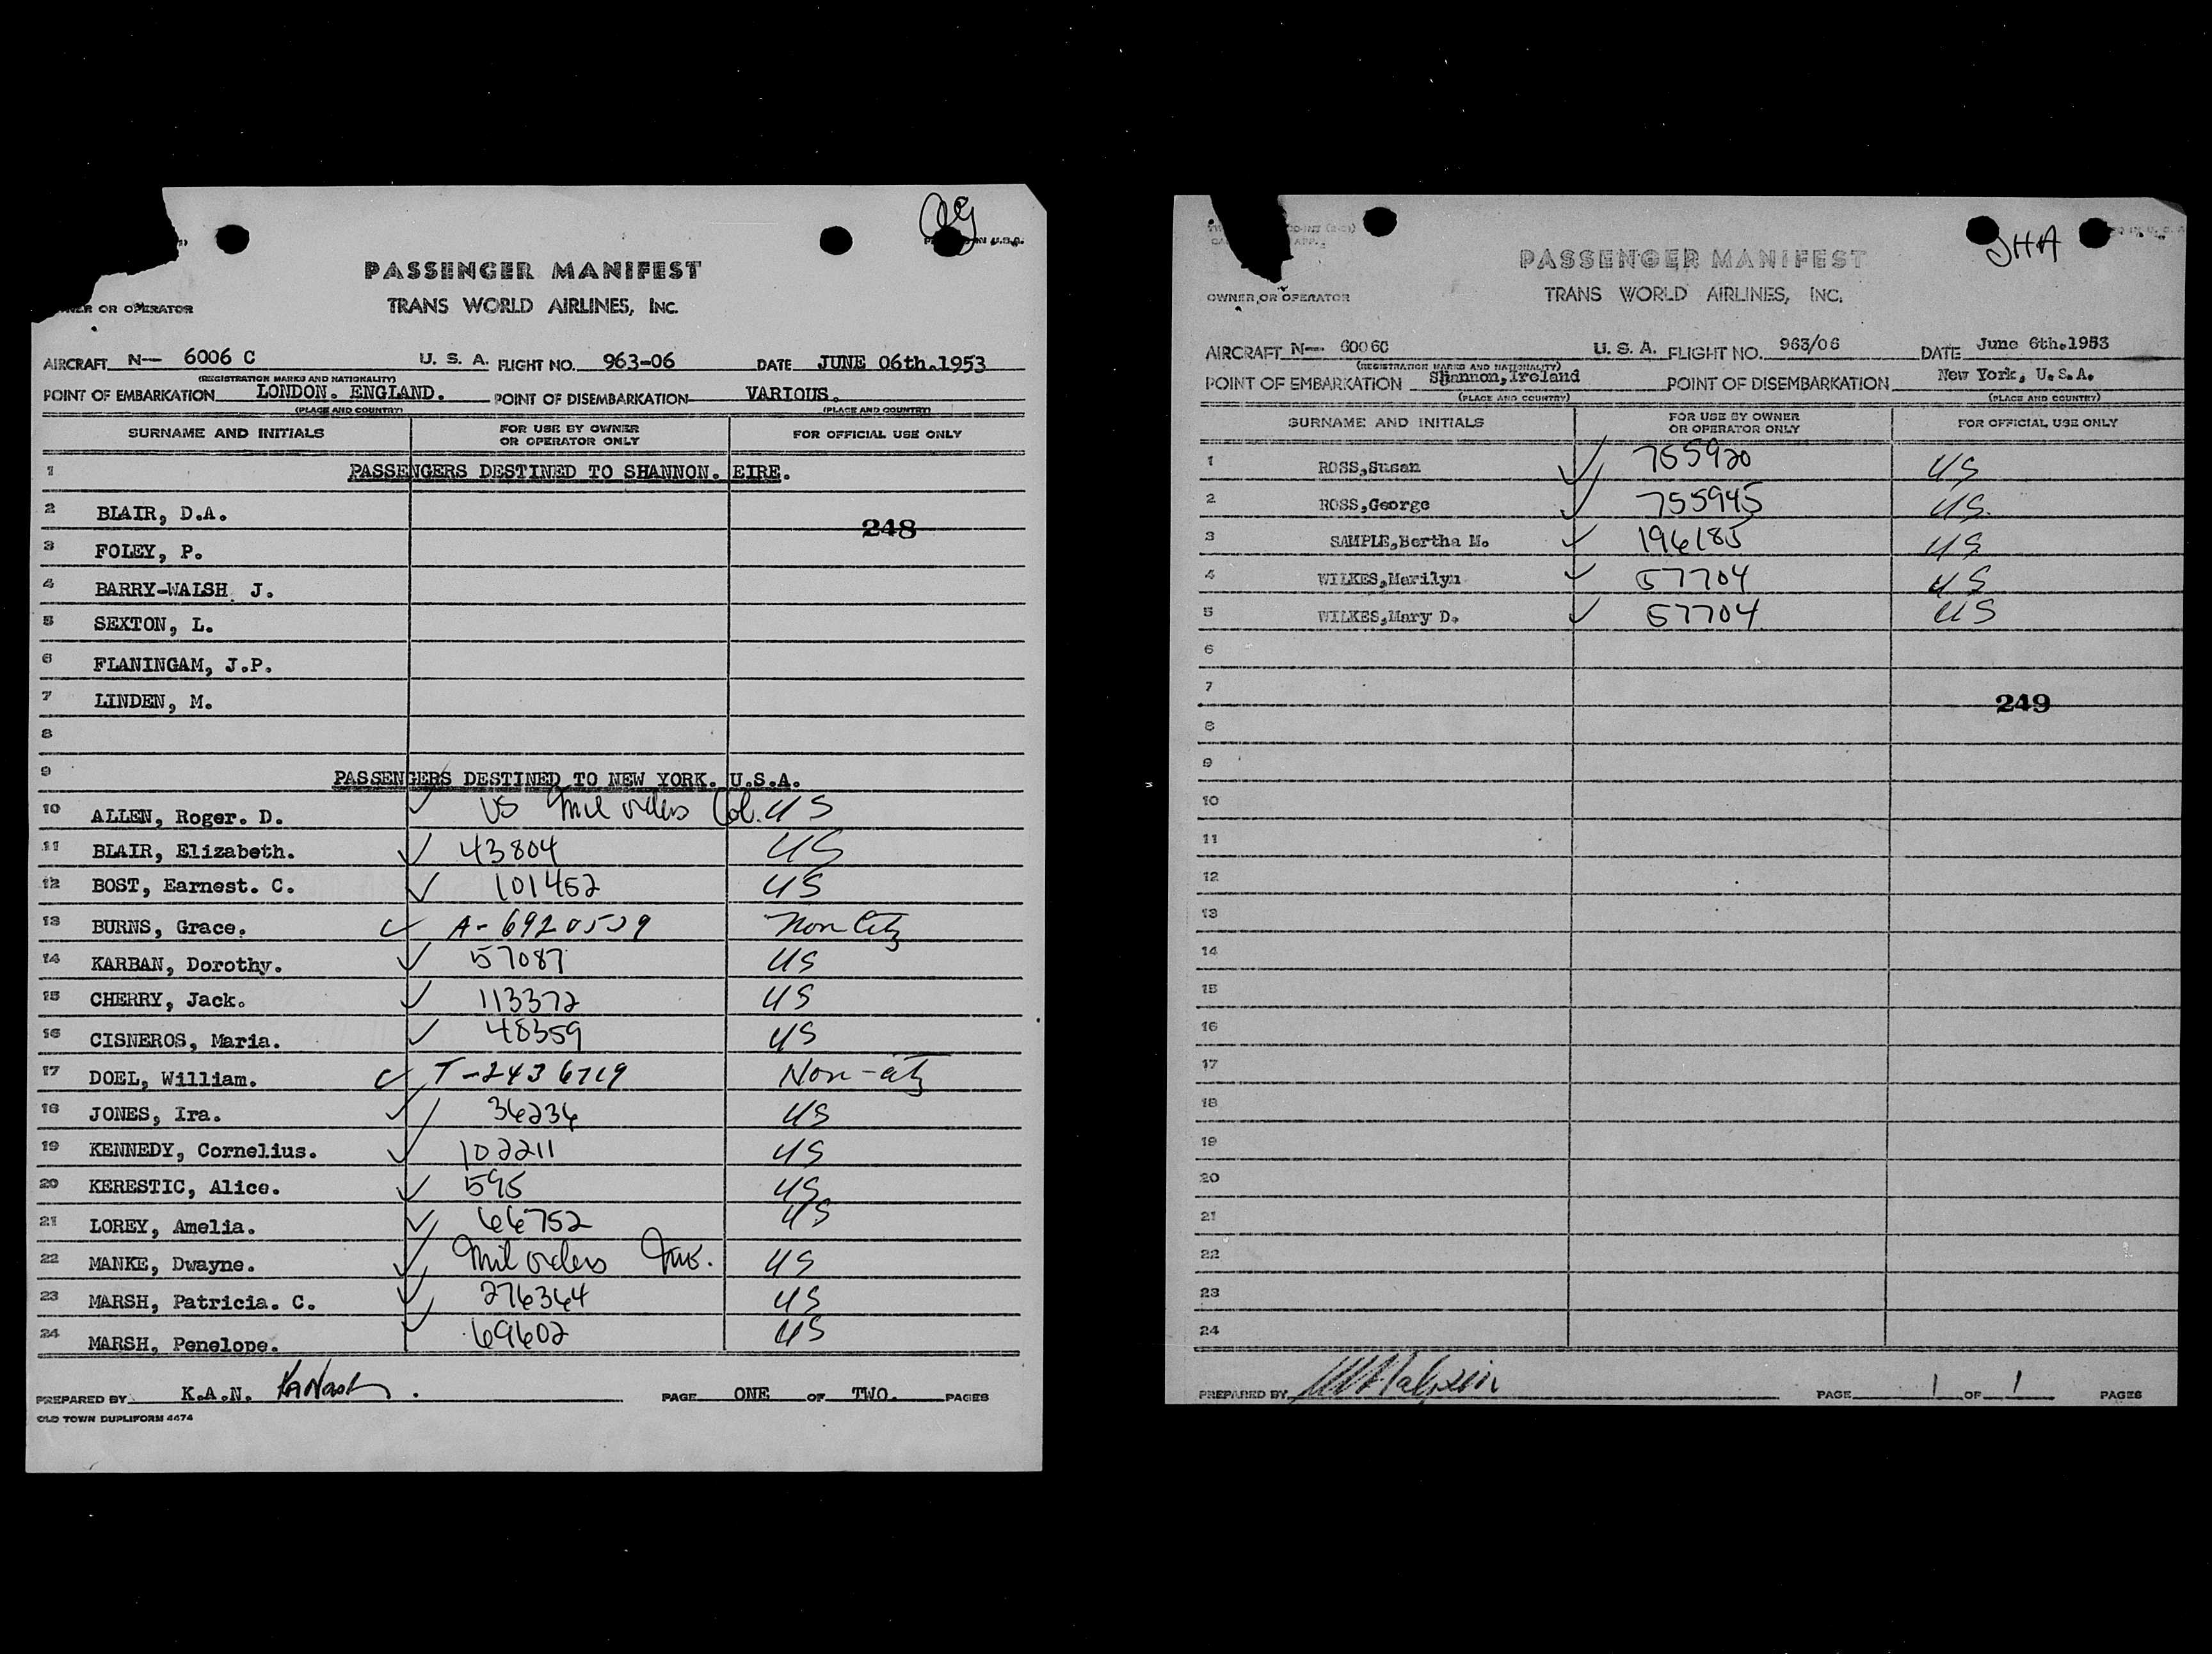 PASSENGER MANIFEST
TRANS WORLD AIRLINES, INC.
OWNER OR OPERATOR
AIRCRAFT N— 6006 C U. S. A. FLIGHT NO. 963-06 DATE JUNE 06th.1953
(REGISTRATION MARKS AND NATIONALITY)
POINT OF EMBARKATION LONDON. ENGLAND. POINT OF DISEMBARKATION VARIOUS.
(PLACE AND COUNTRY) (PLACE AND COUNTRY)
SURNAME AND INITIALS FOR USE BY OWNER OR OPERATOR ONLY FOR OFFICIAL USE ONLY
1 PASSENGERS DESTINED TO SHANNON. EIRE.
2 BLAIR, D.A.
248
3 FOLEY, P.
4 BARRY-WALSH J.
5 SEXTON, L.
6 FLANINGAM, J.P.
7 LINDEN, M.
8
9 PASSENGERS DESTINED TO NEW YORK. U.S.A.
10 ALLEN, Roger. D. ✓ US Mil orders Col. US
11 BLAIR, Elizabeth. ✓ 43804 US
12 BOST, Earnest. C. ✓ 101452 US
13 BURNS, Grace. ✓ A-6920529 Non Citz
14 KARBAN, Dorothy. ✓ 57087 US
15 CHERRY, Jack. ✓ 113372 US
16 CISNEROS, Maria. ✓ 48359 US
17 DOEL, William. ✓ T-2436719 Non-citz
18 JONES, Ira. ✓ 36236 US
19 KENNEDY, Cornelius. ✓ 102211 US
20 KERESTIC, Alice. ✓ 595 US
21 LOREY, Amelia. ✓ 66752 US
22 MANKE, Dwayne. ✓ Mil orders US
23 MARSH, Patricia. C. ✓ 276364 US
24 MARSH, Penelope. ✓ 69602 US
PREPARED BY K.A.N. KANash. PAGE ONE OF TWO. PAGES
OLD TOWN DUPLIFORM 4474
JHA
PASSENGER MANIFEST
TRANS WORLD AIRLINES, INC.
OWNER OR OPERATOR
AIRCRAFT N— 6006C U. S. A. FLIGHT NO. 963/06 DATE June 6th.1953
(REGISTRATION MARKS AND NATIONALITY)
POINT OF EMBARKATION Shannon,Ireland POINT OF DISEMBARKATION New York, U.S.A.
(PLACE AND COUNTRY) (PLACE AND COUNTRY)
SURNAME AND INITIALS FOR USE BY OWNER OR OPERATOR ONLY FOR OFFICIAL USE ONLY
1 ROSS,Susan ✓ 755920 US
2 ROSS,George ✓ 755945 US.
3 SAMPLE,Bertha M. ✓ 196185 US
4 WILKES,Marilyn ✓ 57704 US
5 WILKES,Mary D. ✓ 57704 US
6
7
249
8
9
10
11
12
13
14
15
16
17
18
19
20
21
22
23
24
PREPARED BY PAGE 1 OF 1 PAGES